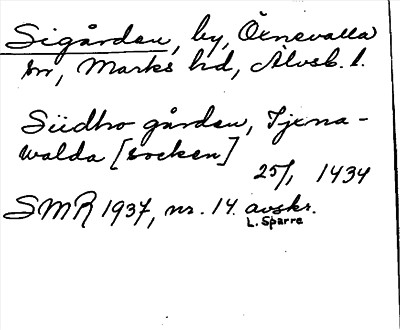 Sigården, by, Örnevalla
sn, Marks hd, Älvsb. l.
Siidhro gården, Tjrna-
walda [socken]
25/1 1434
SMR 1937, nr. 14. avskr.
L. Sparre